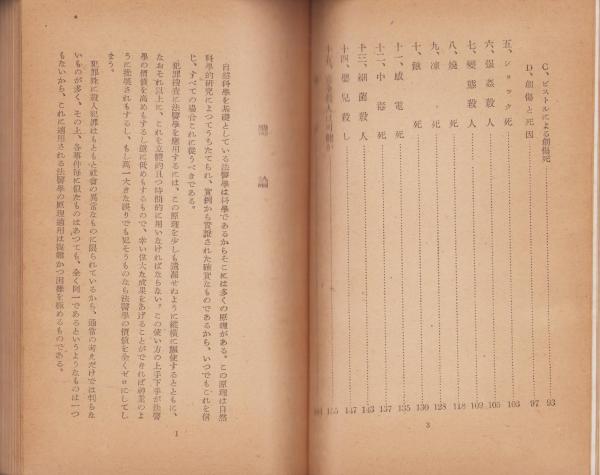 C、ピストルによる創傷死 93
D、創傷と死因 97
五、ショック死 103
六、强姦殺人 105
七、變態殺人 109
八、燒死 118
九、凍死 128
十、餓死 130
十一、感電死 135
十二、中毒死 137
十三、細菌殺人 143
十四、嬰兒殺し 147
155
3
論
自然科學を基礎としている法醫學は科學であるからそこには多くの原理がある。この原理は自然
科學的研究によつてうちたてられ、實例から實證された確實なものであるから、いつでもこれを信
じ、すべての場合これに從うべきである。
犯罪捜査に法醫學を應用するには、この原理を少しも遺漏せぬように縱橫に驅使するとともに、
なおそれ以上に、これを立體的且つ時間的に用いなければならない。この使い方の上手下手が法醫
學の價値を高めもするし低めもするもので、幸い偉大な成果をあげることができれば神業のよ
うに推奬されもするし、もし萬一大きな誤りでも犯そうものなら法醫學の價値を全くゼロにしてし
まう。
犯罪殊に殺人犯罪はもともと社會の異常なものに限られているから、通常の考えだけでは判らな
いものが多く、その上、各事件每に似たものはあつても、全く同一であるというようなものは一つ
もないから、これに適用される法醫學の原理適用は複雜かつ困難を極めるものである。
1